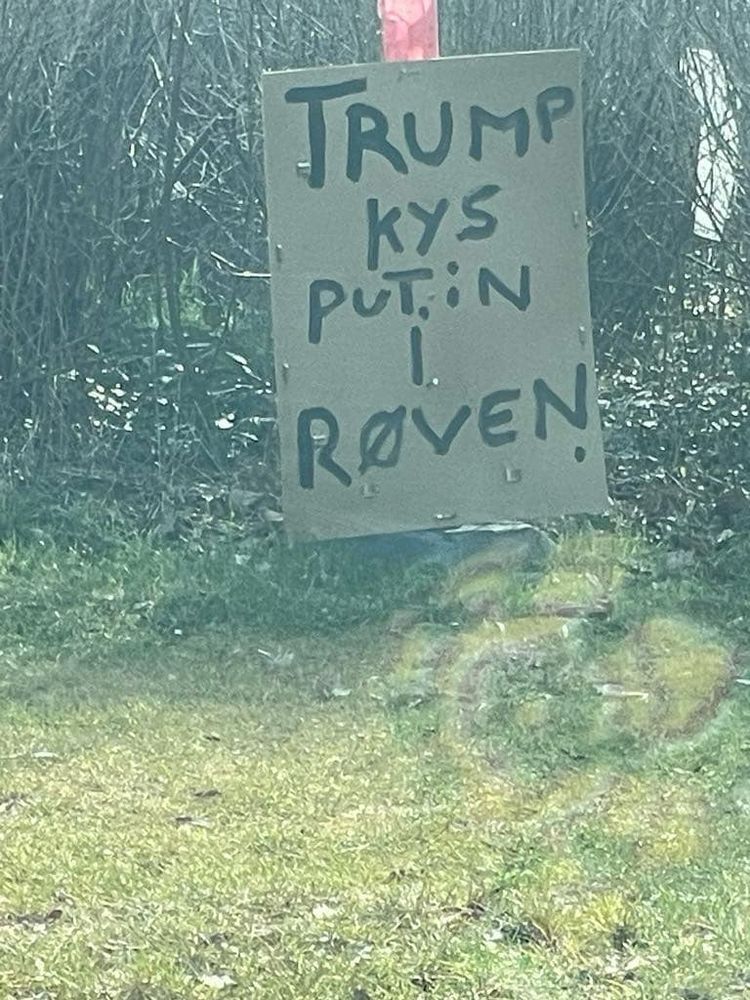 TRUMP
KYS
PUTiN
I
RØVEN!